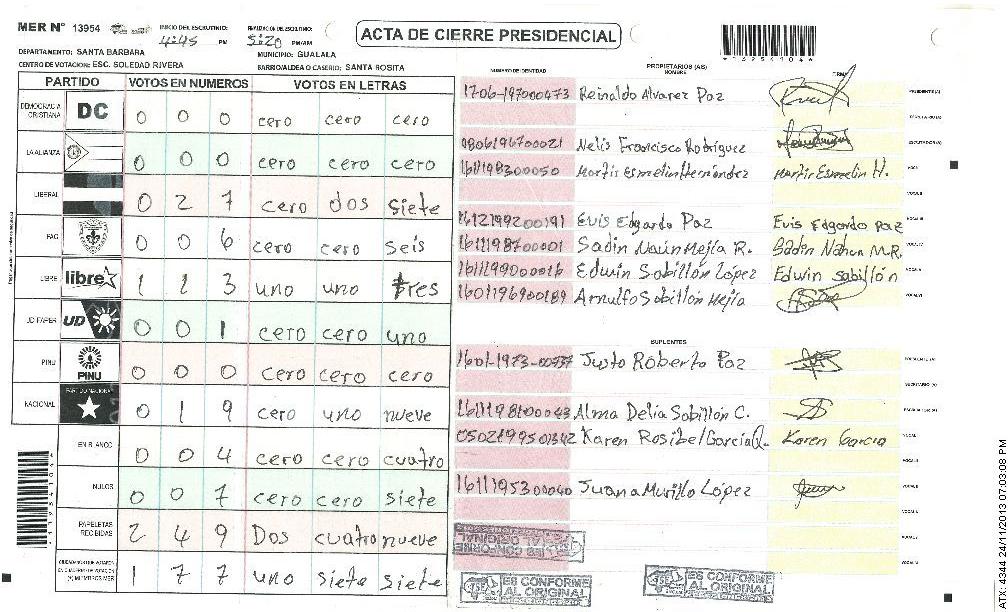 MER N° 13954 INICIO DEL ESCRUTINIO: 4:45 PM FINALIZACION DEL ESCRUTINIO: 5:20 PM/AM
ACTA DE CIERRE PRESIDENCIAL
DEPARTAMENTO: SANTA BARBARA MUNICIPIO: GUALALA
CENTRO DE VOTACION: ESC. SOLEDAD RIVERA BARRIO/ALDEA O CASERIO: SANTA ROSITA
PARTIDO VOTOS EN NUMEROS VOTOS EN LETRAS
DEMOCRACIA CRISTIANA DC 0 0 0 cero cero cero
LA ALIANZA 0 0 0 cero cero cero
LIBERAL 0 2 7 cero dos siete
FAC 0 0 6 cero cero seis
LIBRE libre 1 1 3 uno uno tres
UD FAPER UD 0 0 1 cero cero uno
PINU PINU 0 0 0 cero cero cero
NACIONAL PARTIDO NACIONAL 0 1 9 cero uno nueve
EN BLANCO 0 0 4 cero cero cuatro
NULOS 0 0 7 cero cero siete
PAPELETAS RECIBIDAS 2 4 9 Dos cuatro nueve
1 7 7 uno siete siete
NUMERO DE IDENTIDAD PROPIETARIOS (AS) NOMBRE FIRMA
1706-197000473 Reinaldo Alvarez Paz PRESIDENTE (A)
SECRETARIO (A)
0806196700021 Nelis Francisco Rodríguez ESCRUTADOR (A)
1611198300050 Martir Esmelin Hernández Martir Esmelin H. VOCAL I
VOCAL II
1612199200191 Evis Edgardo Paz Evis Edgardo Paz VOCAL III
1611198700001 Sadin Naún Mejía R. Sadin Nahun M.R. VOCAL IV
1611199000016 Edwin Sobillón López Edwin sobillón VOCAL V
1601196900189 Arnulfo Sobillón Mejía VOCAL VI
SUPLENTES
1601-1973-00737 Justo Roberto Paz PRESIDENTE (A)
SECRETARIO (A)
1611198100043 Alma Delia Sobillón C. ESCRUTADOR (A)
0502199501342 Karen Rosibel García Q. Karen Garcia VOCAL I
VOCAL II
1611195300040 Juana Murillo López VOCAL III
ES CONFORME AL ORIGINAL
TSE ES CONFORME AL ORIGINAL
TSE ES CONFORME AL ORIGINAL
CTX: 4344 24/11/2013 07:03:08 PM